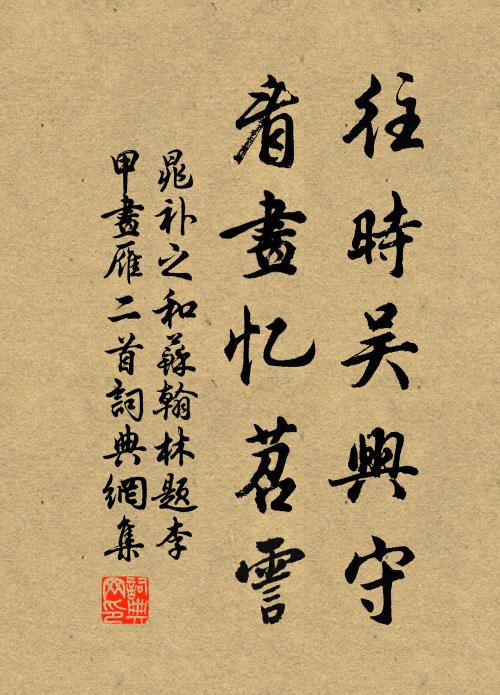 往時吴興守
看畫忆苕霅
晁补之和蘇翰林题李
甲畫雁二首詞典網集
詞典网印